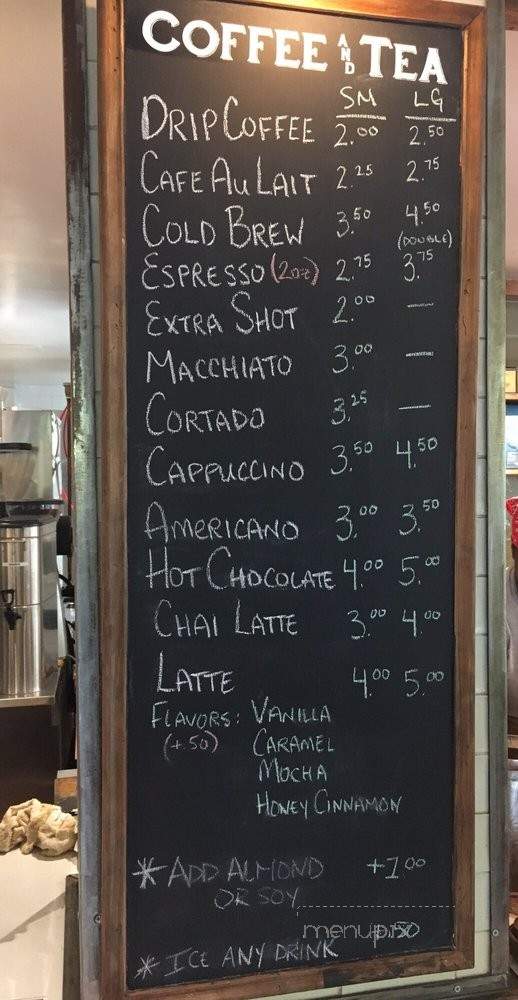 COFFEE AND TEA
SM LG
DRIP COFFEE 2.00 2.50
CAFE AU LAIT 2.25 2.75
COLD BREW 3.50 4.50
(DOUBLE)
ESPRESSO (2oz) 2.75 3.75
EXTRA SHOT 2.00 —
MACCHIATO 3.00 —
CORTADO 3.25 —
CAPPUCCINO 3.50 4.50
AMERICANO 3.00 3.50
HOT CHOCOLATE 4.00 5.00
CHAI LATTE 3.00 4.00
LATTE 4.00 5.00
FLAVORS: VANILLA
(+.50) CARAMEL
MOCHA
HONEY CINNAMON
* ADD ALMOND +1.00
OR SOY
* ICE ANY DRINK